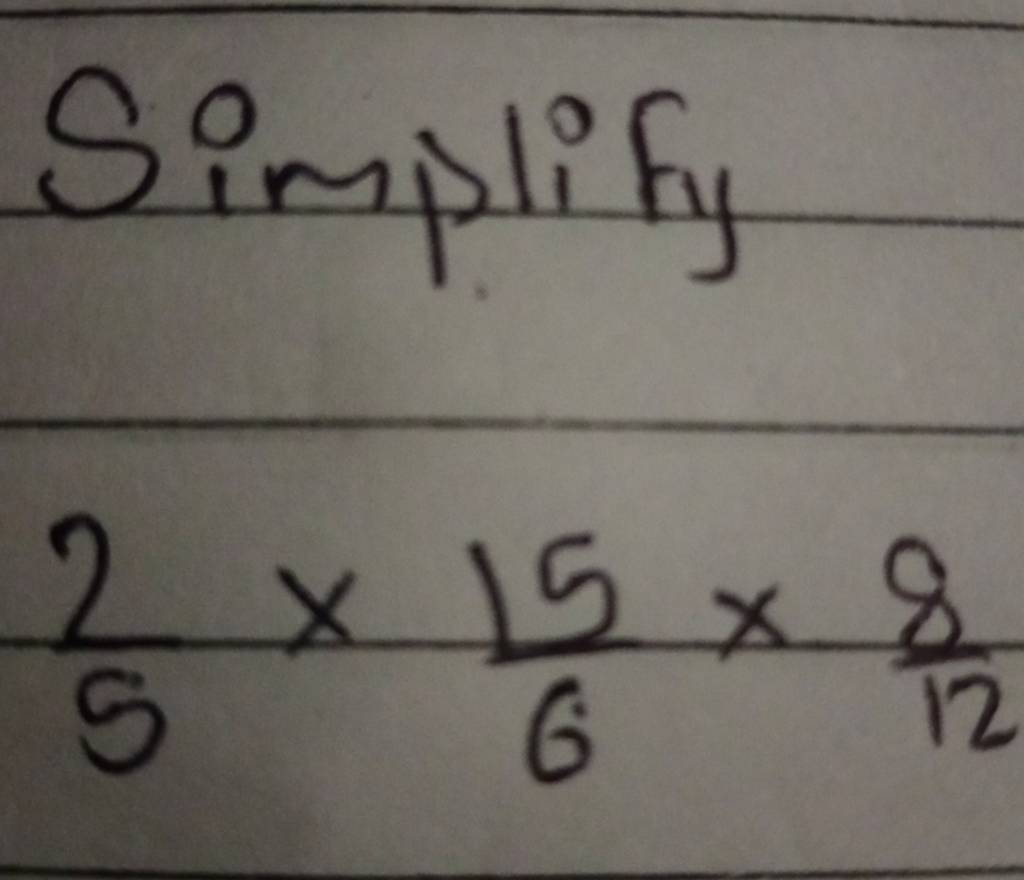 Simplify
2/5 × 15/6 × 8/12